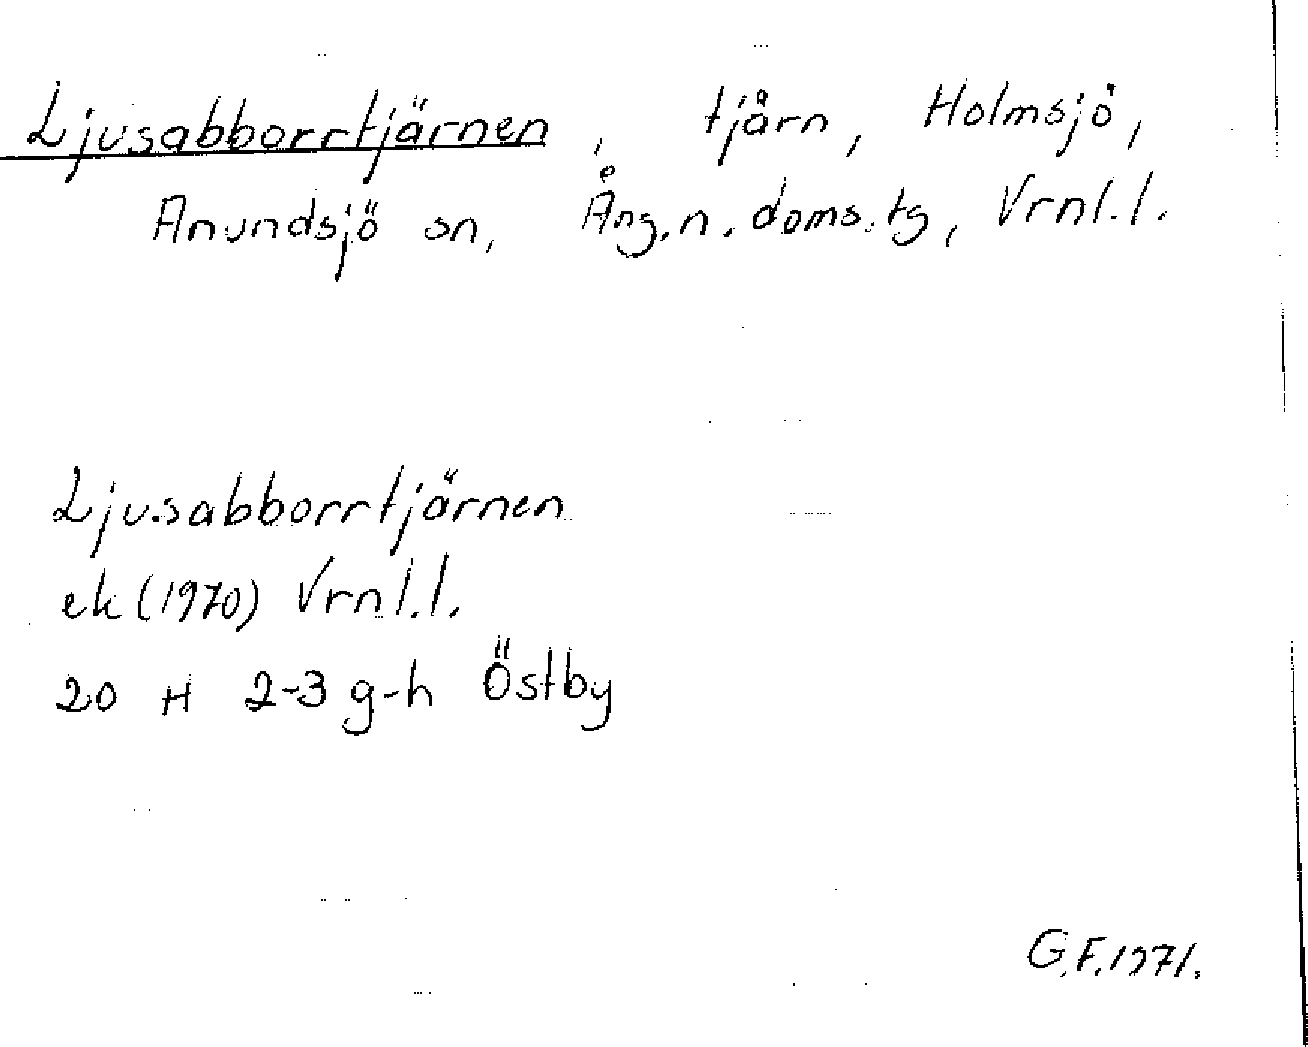 Ljusabborrtjärnen, tjärn, Holmsjö,
Anundsjö sn, Ång.n.doms.tg, Vrnl.l.
Ljusabborrtjärnen
ek (1970) Vrnl.l.
20 H 2-3 g-h Östby
G.F.1971.